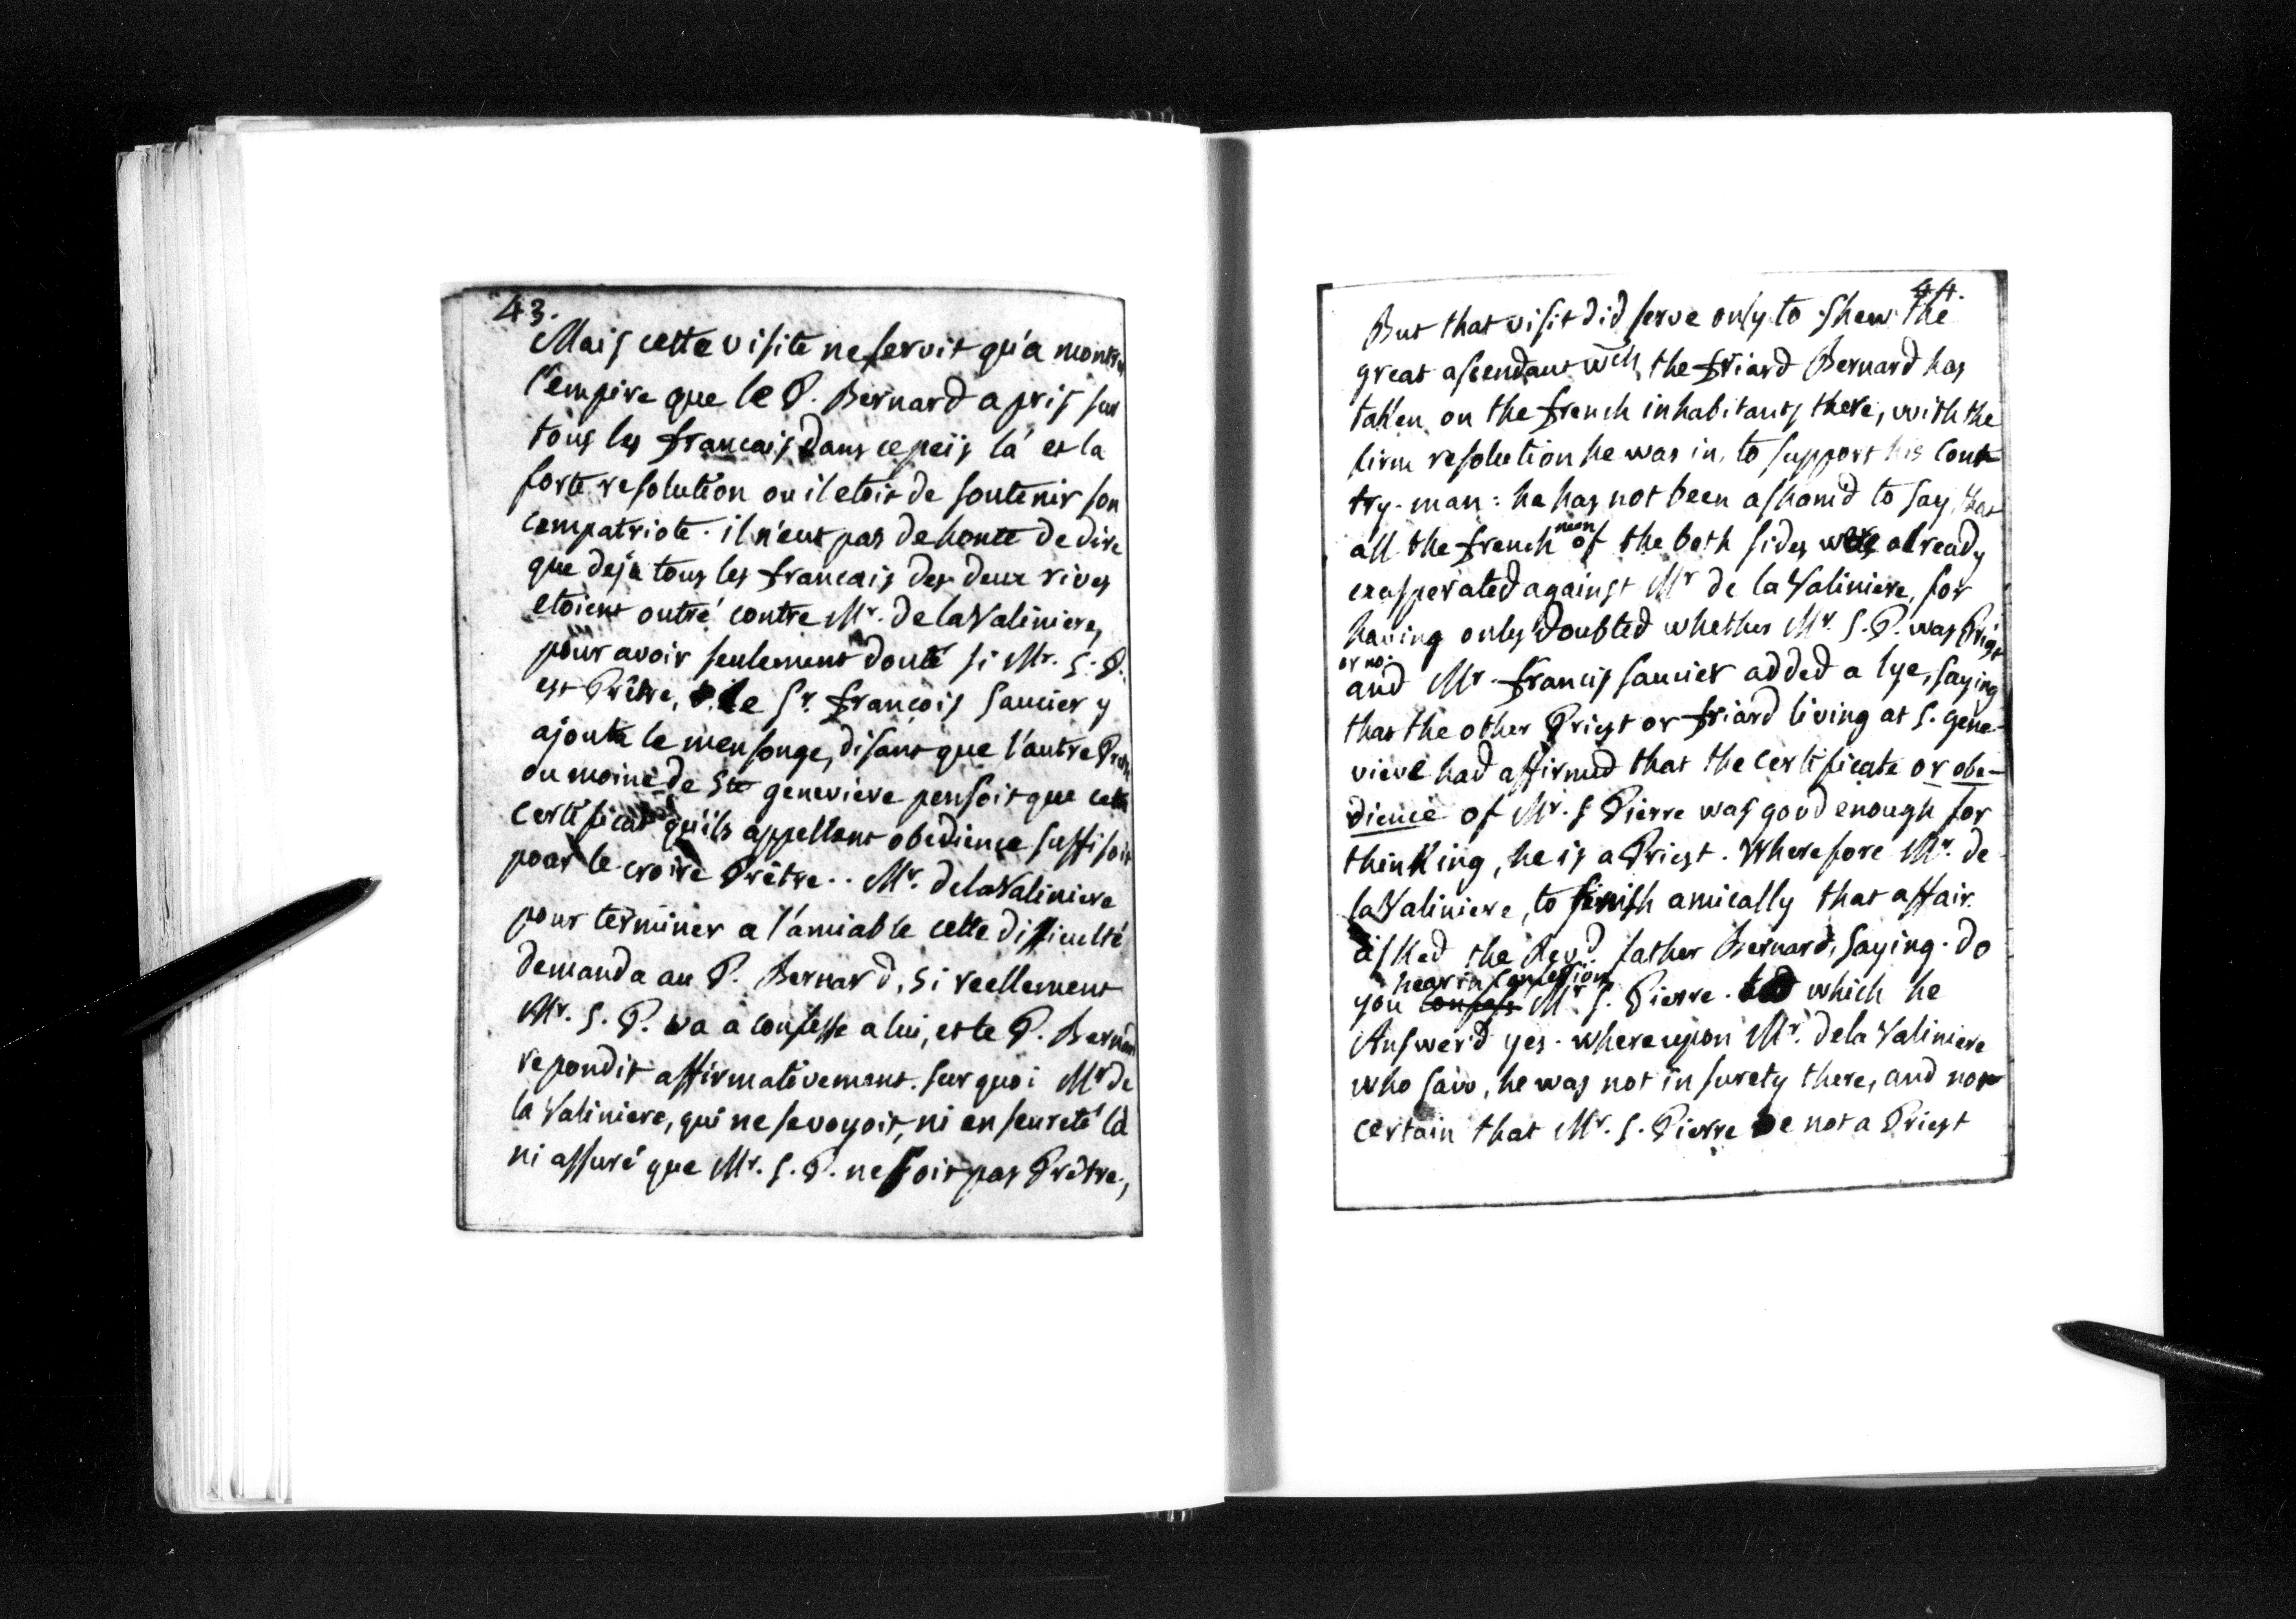 43.
Mais cette visite ne servit qu'a montrer
l'empire que le P. Bernard a pris sur
tous les francais dans ce peïs la' et la
forte resolution ou il etoit de soutenir son
compatriote. il n'eut pas de honte de dire
que deja tous les francais des deux rives
etoient outré contre Mr. de la Valiniere,
pour avoir seulement douté si Mr. S. P.
est Prêtre, le Sr. françois saucier y
ajouta le mensonge, disant que l'autre
ou moine de Ste genevieve pensoit que cette
certificat qu'ils appellent obedience suffisoit
pour le croire Prêtre.. Mr. de la Valiniere
pour terminer a l'amiable cette difficulté
demanda au P. Bernard, si reellement
Mr. S. P. va a confesse a lui, et le P. Bernard
repondit affirmativement. sur quoi Mr de
la Valiniere, qui ne se voyoit, ni en seureté là
ni assuré que Mr. S. P. ne soit pas Prêtre,
44.
But that visit did serve only to shew the
great ascendant wch the friard Bernard has
taken on the french inhabitants there, with the
firm resolution he was in, to support his coun
try-man: he has not been asham'd to say, that
all the french men of the both sides were already
exasperated against Mr de la Valiniere, for
having only doubted whether Mr. S. P. was Priest
or no:
and Mr. francis saucier added a lye, saying
that the other Priest or friard living at S. gene-
vieve had affirmed that the certificate or obe-
dience of Mr. S Pierre was good enough for
thinking, he is a Priest. Wherefore Mr. de
la Valiniere, to finish amically that affair
asked the Revd. father Bernard, saying. do
you confess hear in confession Mr S. Pierre. which he
Answer'd yes. whereupon Mr. de la Valiniere
who saw, he was not in surety there, and nor
certain that Mr. S. Pierre be not a Priest